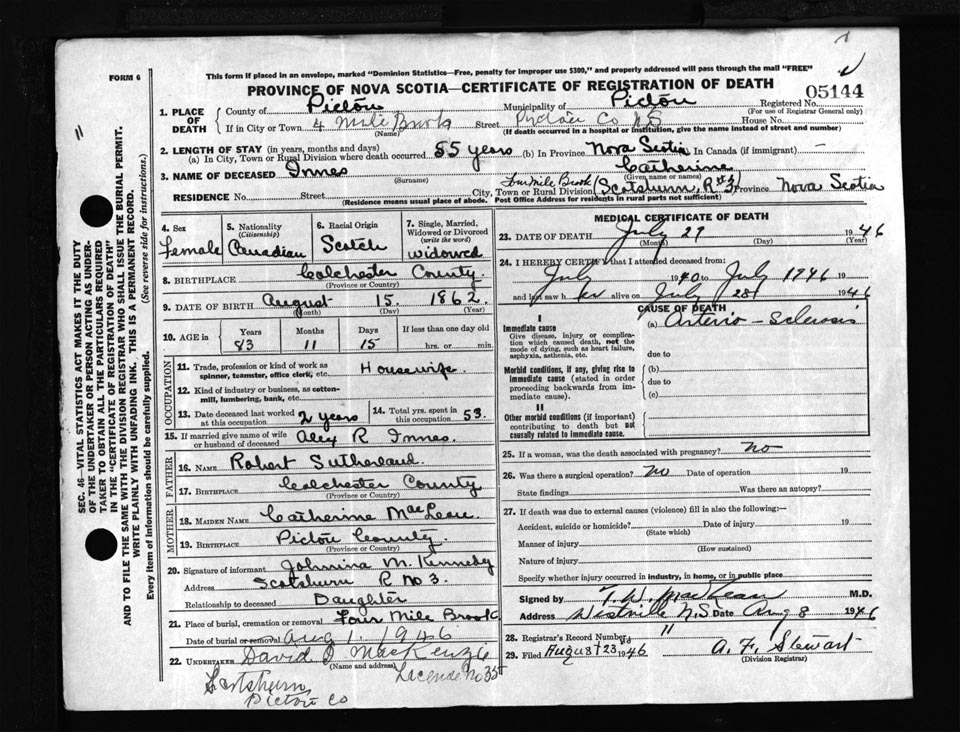 FORM 6
This form if placed in an envelope, marked "Dominion Statistics—Free, penalty for improper use $300," and properly addressed will pass through the mail "FREE"
PROVINCE OF NOVA SCOTIA—CERTIFICATE OF REGISTRATION OF DEATH
05144
1. PLACE OF DEATH
County of Pictou Municipality of Pictou Registered No.
(For use of Registrar General only)
If in City or Town 4 Mile Brook Street Pictou Co NS House No.
(Name) (If death occurred in a hospital or institution, give the name instead of street and number)
2. LENGTH OF STAY (in years, months and days)
(a) In City, Town or Rural Division where death occurred 55 years (b) In Province Nova Scotia In Canada (if immigrant) —
3. NAME OF DECEASED Innes Catherine
(Surname) (Given name or names)
RESIDENCE No. Street City, Town or Rural Division Four Mile Brook (Scotsburn, R# 3) Province Nova Scotia
(Residence means usual place of abode. Post Office Address for residents in rural parts not sufficient)
4. Sex
Female
5. Nationality
(Citizenship)
Canadian
6. Racial Origin
Scotch
7. Single, Married, Widowed or Divorced
(write the word)
Widowed
8. BIRTHPLACE Colchester County
(Province or Country)
9. DATE OF BIRTH August 15. 1862.
(Month) (Day) (Year)
10. AGE in
Years Months Days If less than one day old
83 11 15 hrs. or min.
OCCUPATION
11. Trade, profession or kind of work as spinner, teamster, office clerk, etc. Housewife.
12. Kind of industry or business, as cotton-mill, lumbering, bank, etc.
13. Date deceased last worked at this occupation 2 years
14. Total yrs. spent in this occupation 53.
15. If married give name of wife or husband of deceased Alex R Innes.
FATHER
16. NAME Robert Sutherland.
17. BIRTHPLACE Colchester County
(Province or Country)
MOTHER
18. MAIDEN NAME Catherine MacLean
19. BIRTHPLACE Pictou County.
(Province or Country)
20. Signature of informant Johnina M. Kennedy
Address Scotsburn R No 3.
Relationship to deceased Daughter
21. Place of burial, cremation or removal Four Mile Brook
Date of burial or removal Aug 1. 1946
22. UNDERTAKER David J MacKenzie
(Name and address)
Scotsburn License No 35
Pictou Co
MEDICAL CERTIFICATE OF DEATH
23. DATE OF DEATH July 29 1946
(Month) (Day) (Year)
24. I HEREBY CERTIFY that I attended deceased from:
July 1940 to July 1946 19
and last saw her alive on July 28 1946
CAUSE OF DEATH
I
Immediate cause
Give disease, injury or complication which caused death, not the mode of dying, such as heart failure, asphyxia, asthenia, etc.
(a) Arterio-Sclerosis
due to
Morbid conditions, if any, giving rise to immediate cause (stated in order proceeding backwards from immediate cause).
(b)
due to
(c)
II
Other morbid conditions (if important) contributing to death but not causally related to immediate cause.
25. If a woman, was the death associated with pregnancy? No
26. Was there a surgical operation? No Date of operation 19
State findings Was there an autopsy?
27. If death was due to external causes (violence) fill in also the following:—
Accident, suicide or homicide? Date of injury 19
(State which)
Manner of injury
(How sustained)
Nature of injury
Specify whether injury occurred in industry, in home, or in public place
Signed by T. W. MacLean M.D.
Address Westville N.S Date Aug 8 1946
28. Registrar's Record Number 11
29. Filed August 23rd 1946 A. F. Stewart
(Division Registrar)
SEC. 46—VITAL STATISTICS ACT MAKES IT THE DUTY
OF THE UNDERTAKER OR PERSON ACTING AS UNDER-
TAKER TO OBTAIN ALL THE PARTICULARS REQUIRED
IN THE "CERTIFICATE OF REGISTRATION OF DEATH"
AND TO FILE THE SAME WITH THE DIVISION REGISTRAR WHO SHALL ISSUE THE BURIAL PERMIT.
WRITE PLAINLY WITH UNFADING INK. THIS IS A PERMANENT RECORD.
Every item of information should be carefully supplied. (See reverse side for instructions.)